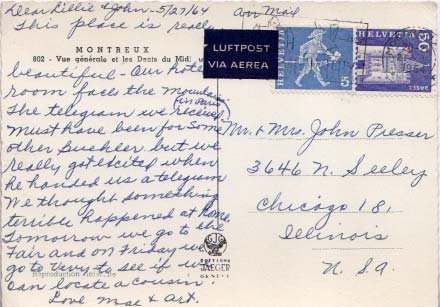 Dear Lillie & John - 5/27/64
Air Mail
This place is really
MONTREUX
802 - Vue générale et les Dents du Midi
beautiful - Our hotel
room faces the mountains
in Paris
The telegram we received
must have been for some
other Buehler but we
really got excited when
he handed us a telegram
We thought something
terrible happened at home,
Tomorrow we go to the
Fair and on Friday we
go to Vevy to see if we
can locate a cousin.
Love Mae & Art.
Reproduction
LUFTPOST
VIA AEREA
HELVETIA
5
HELVETIA
50
BASEL
Mr. & Mrs. John Presser
3646 N. Seeley
Chicago 18,
Illinois
U.S.A.
EDITIONS
JAEGER
GENÈVE